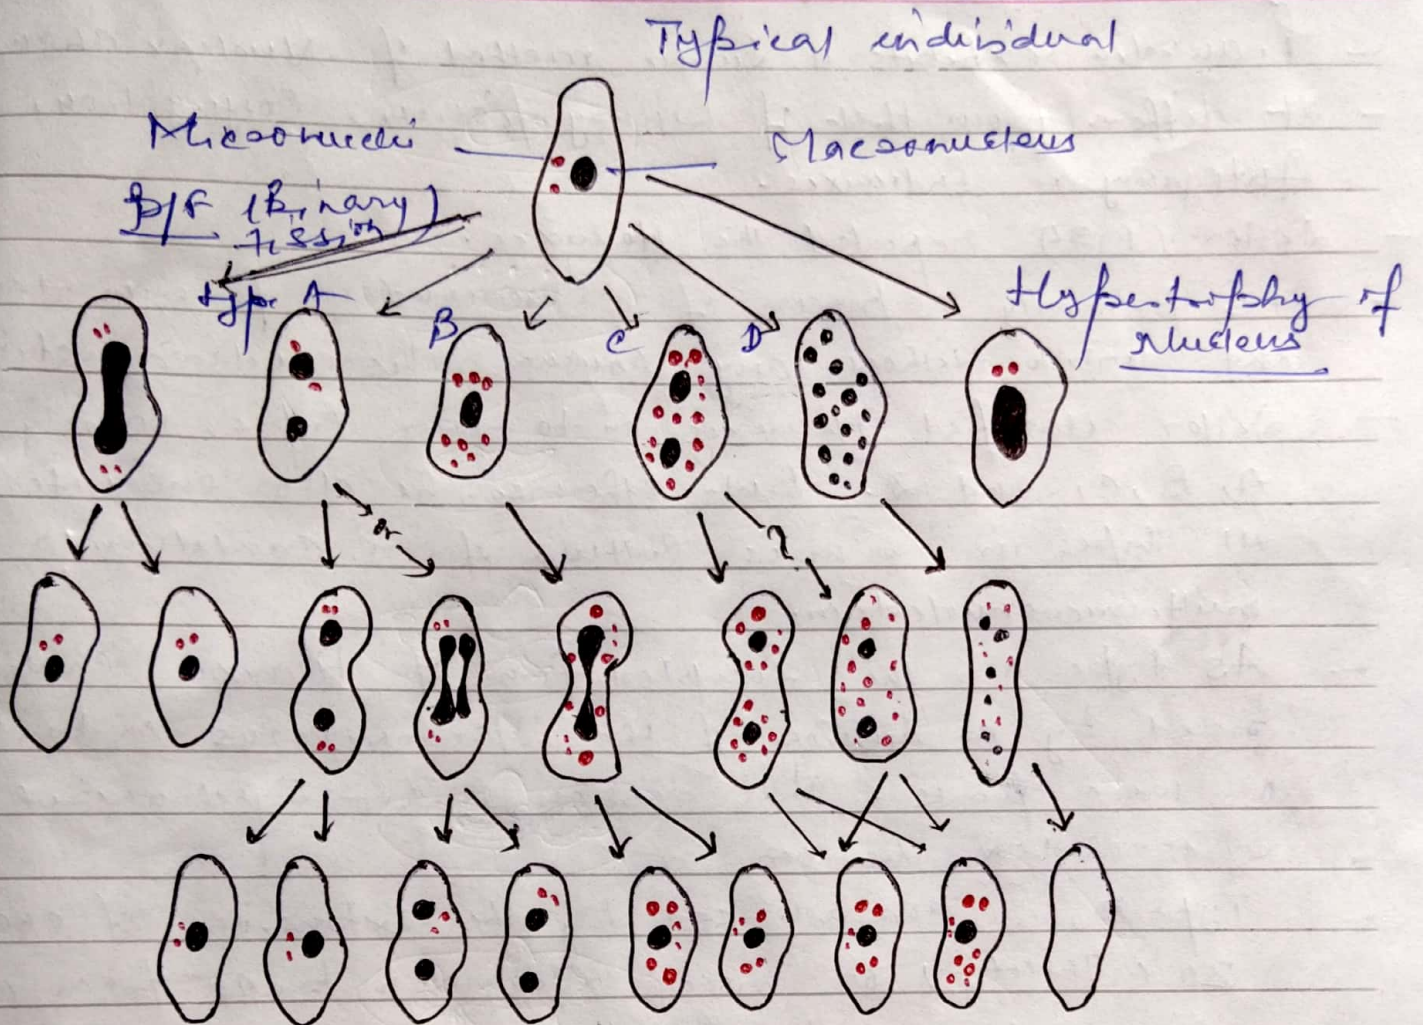 Typical individual
Micronuclei
Macronucleus
B/F (Binary
fission)
Type A
B
C
D
Hypertrophy of
Nucleus
or
?